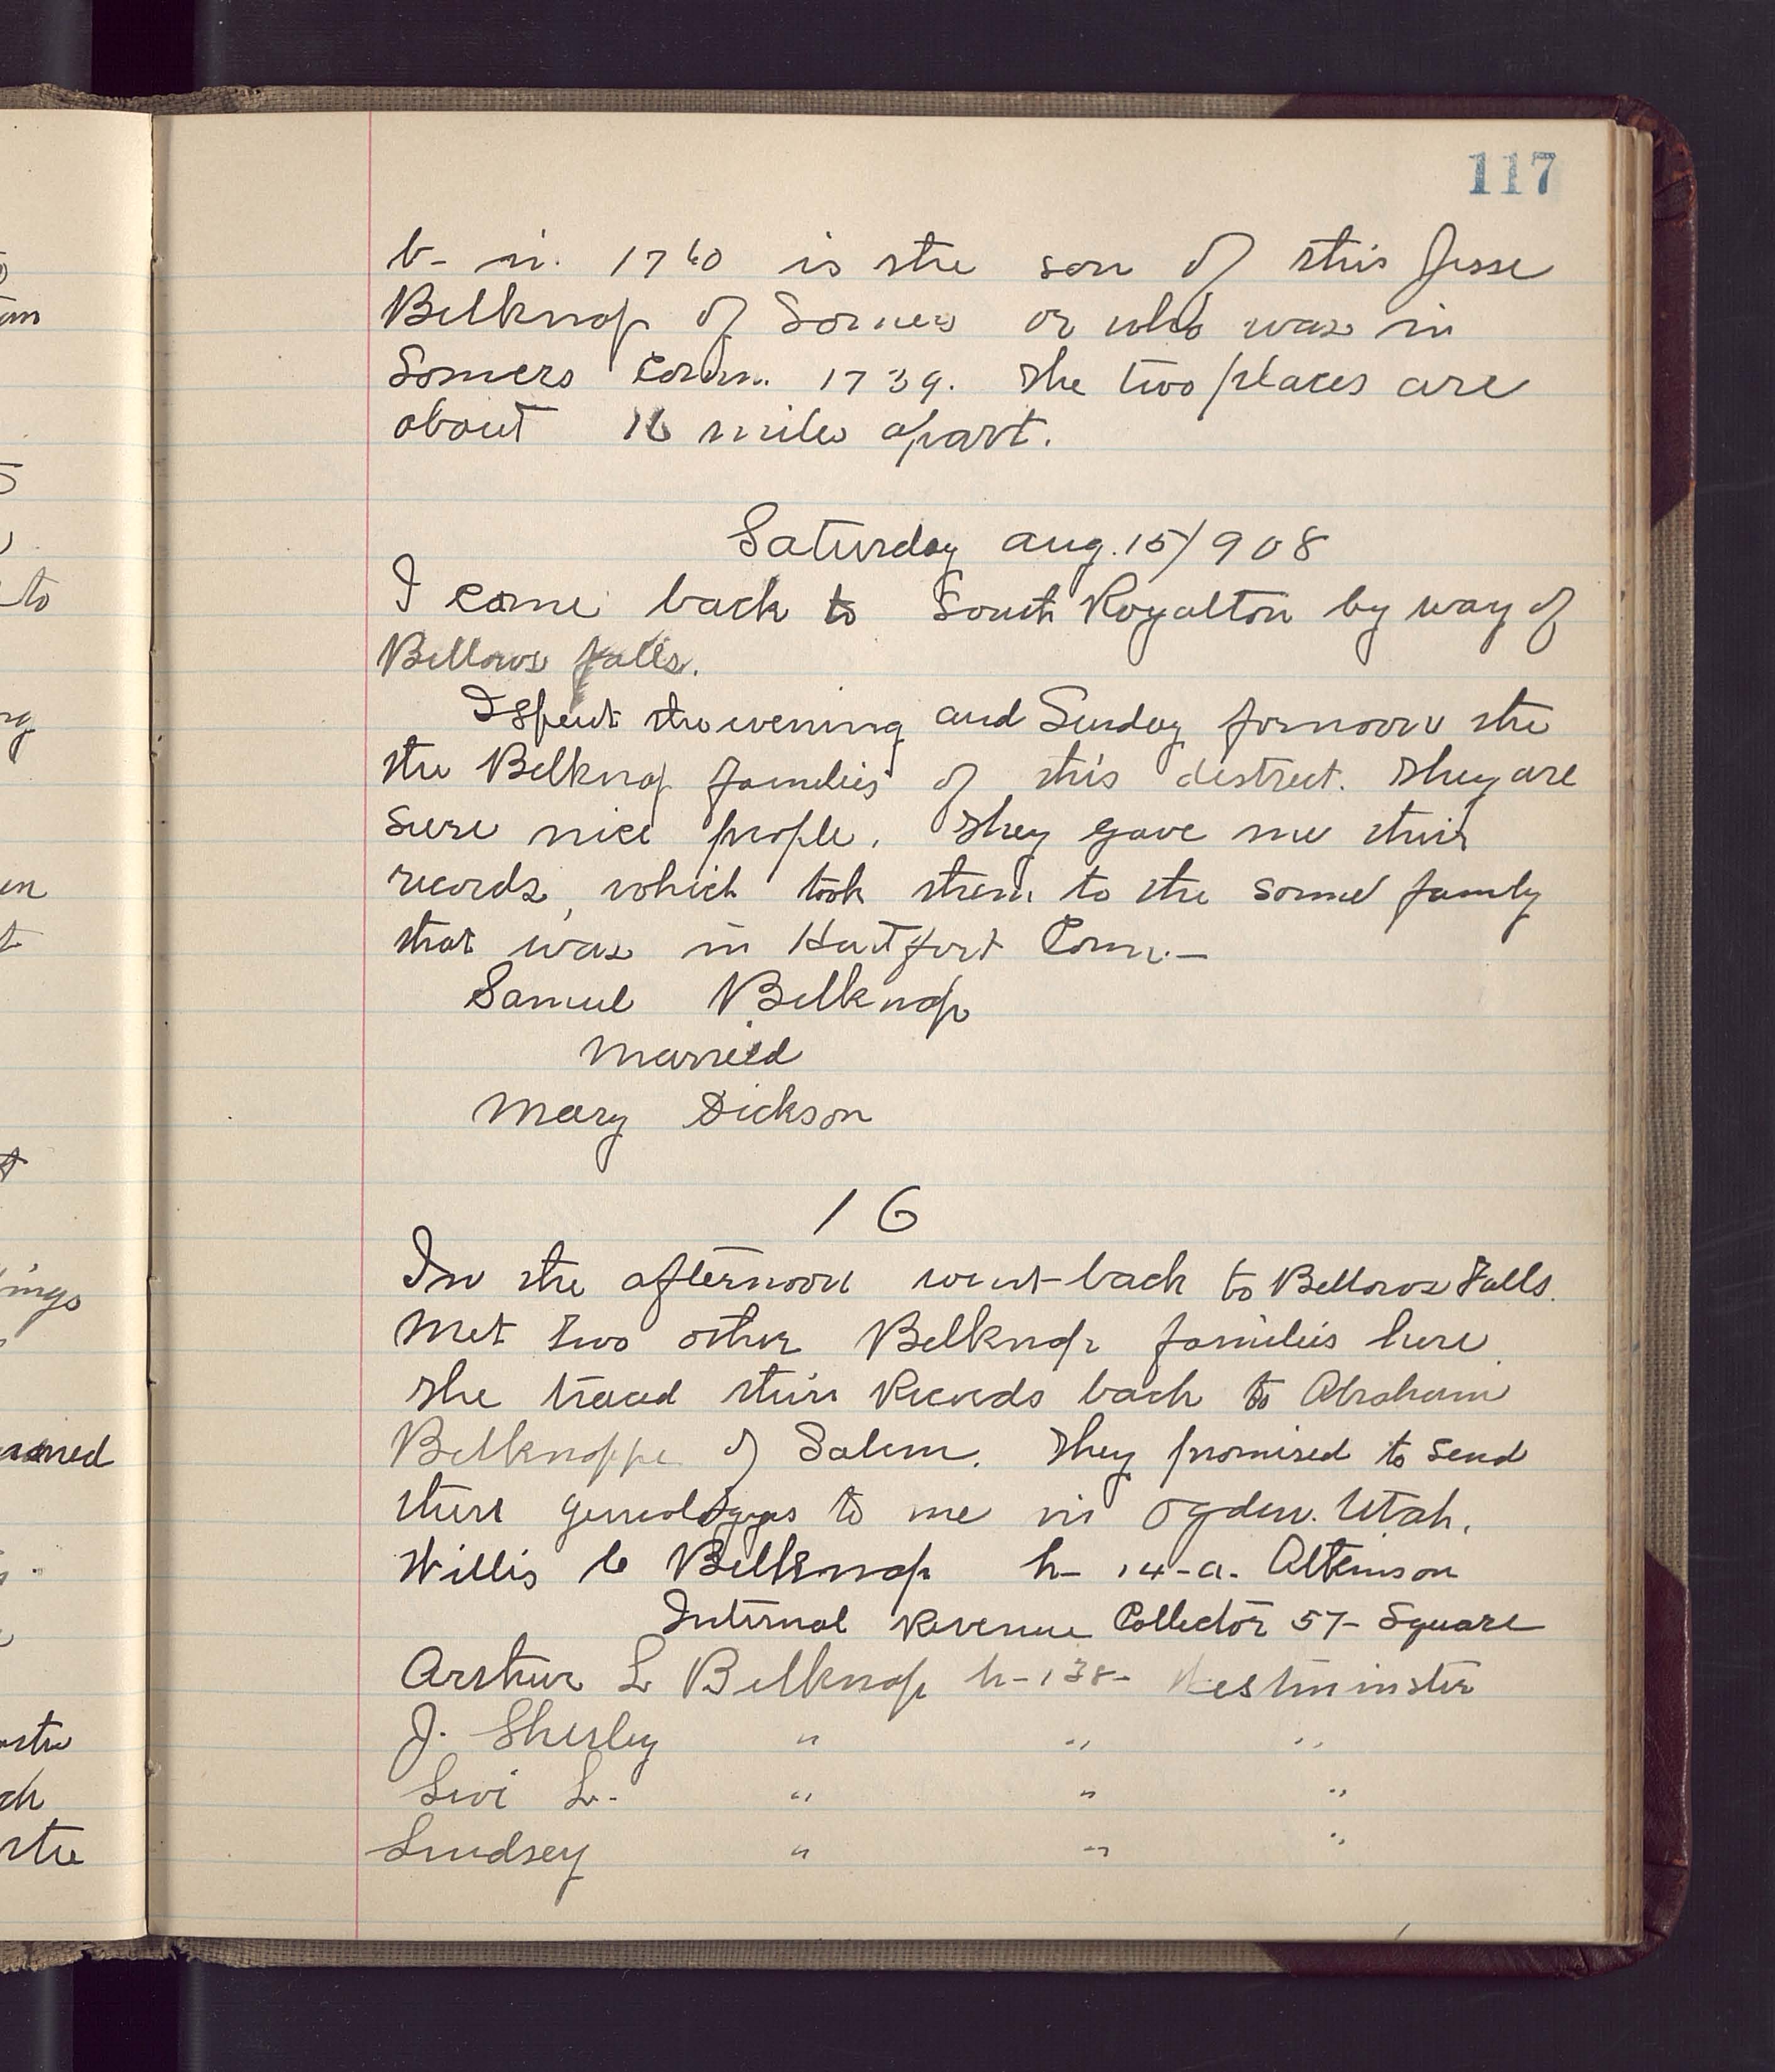 117
b- in. 1760 is the son of this Jesse
Belknap of Somers or who was in
Somers Conn. 1739. The two places are
about 16 miles apart.
Saturday Aug. 15/908
I came back to South Royalton by way of
Bellows falls.
I spent the evening and Sunday fornoon the
the Belknap families of this district. They are
sure nice people. They gave me their
records, which took them to the same family
that was in Hartfort Conn.—
Samuel Belknap
Married
Mary Dickson
16
In the afternoon went back to Bellows Falls.
Met two other Belknap families here.
The traced their Records back to Abraham
Belknappe of Salem. They promised to send
there to me in Ogden. Utah.
Willis C Belknap h- 14-a. Atkinson
Internal Revenue Collector 57- Square
Arthur L Belknap h-138- Westminster
J. Shirley " " "
Levi L. " " "
Lindsey " " "
to
ing
en
t
ings
the
ch
the